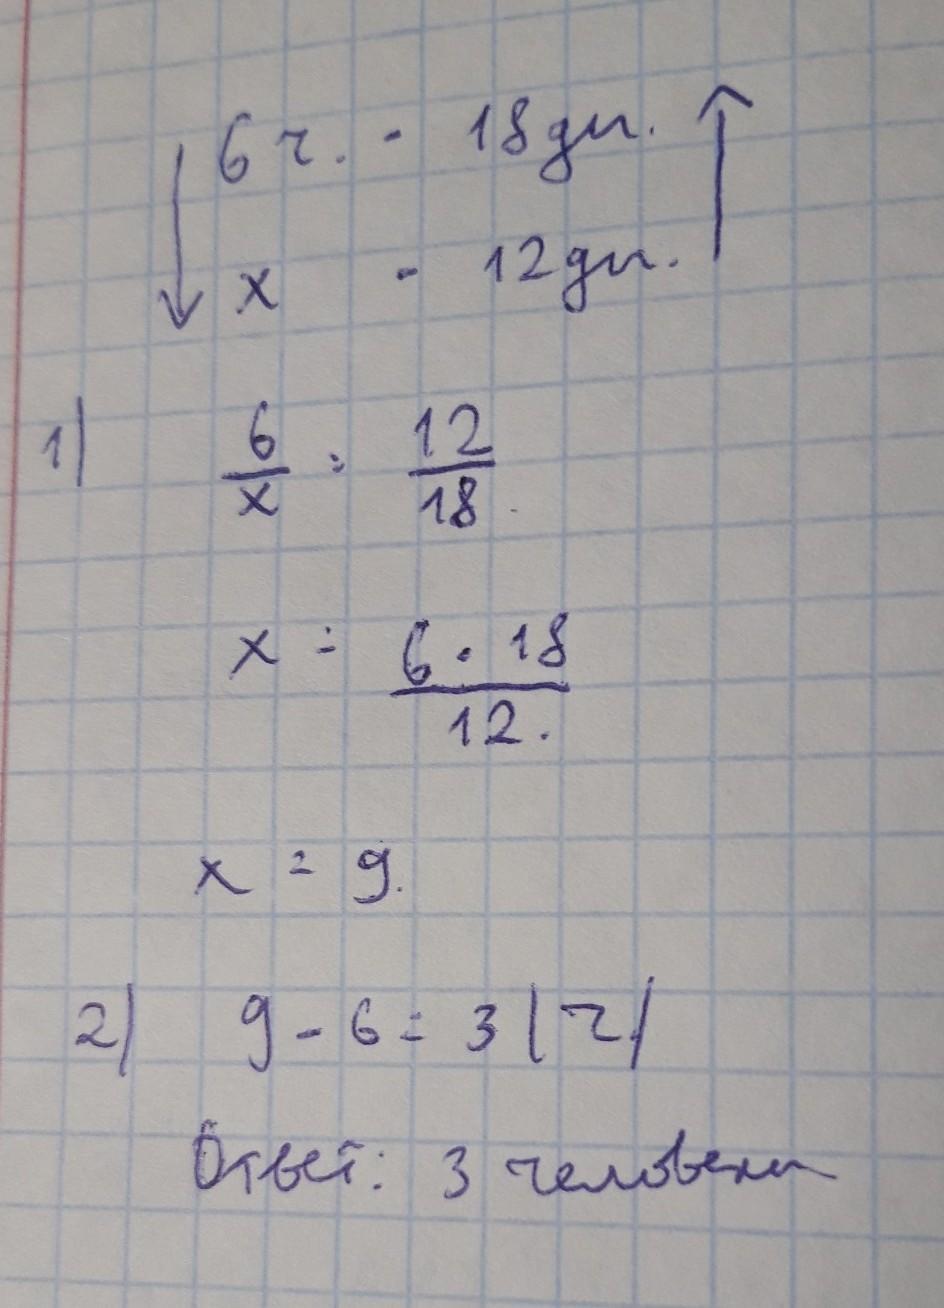 6 ч. - 18 дн.
x - 12 дн.
1) 6/x = 12/18
x = 6 · 18 / 12.
x = 9.
2) 9 - 6 = 3 (ч)
Ответ: 3 человека